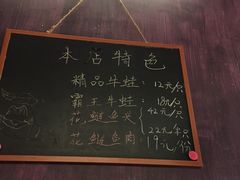 本店特色
精品牛蛙：12元/只
霸王牛蛙：18元/只
花鲢鱼头：42元/只
花鲢鱼肉：22元/只
19元/份